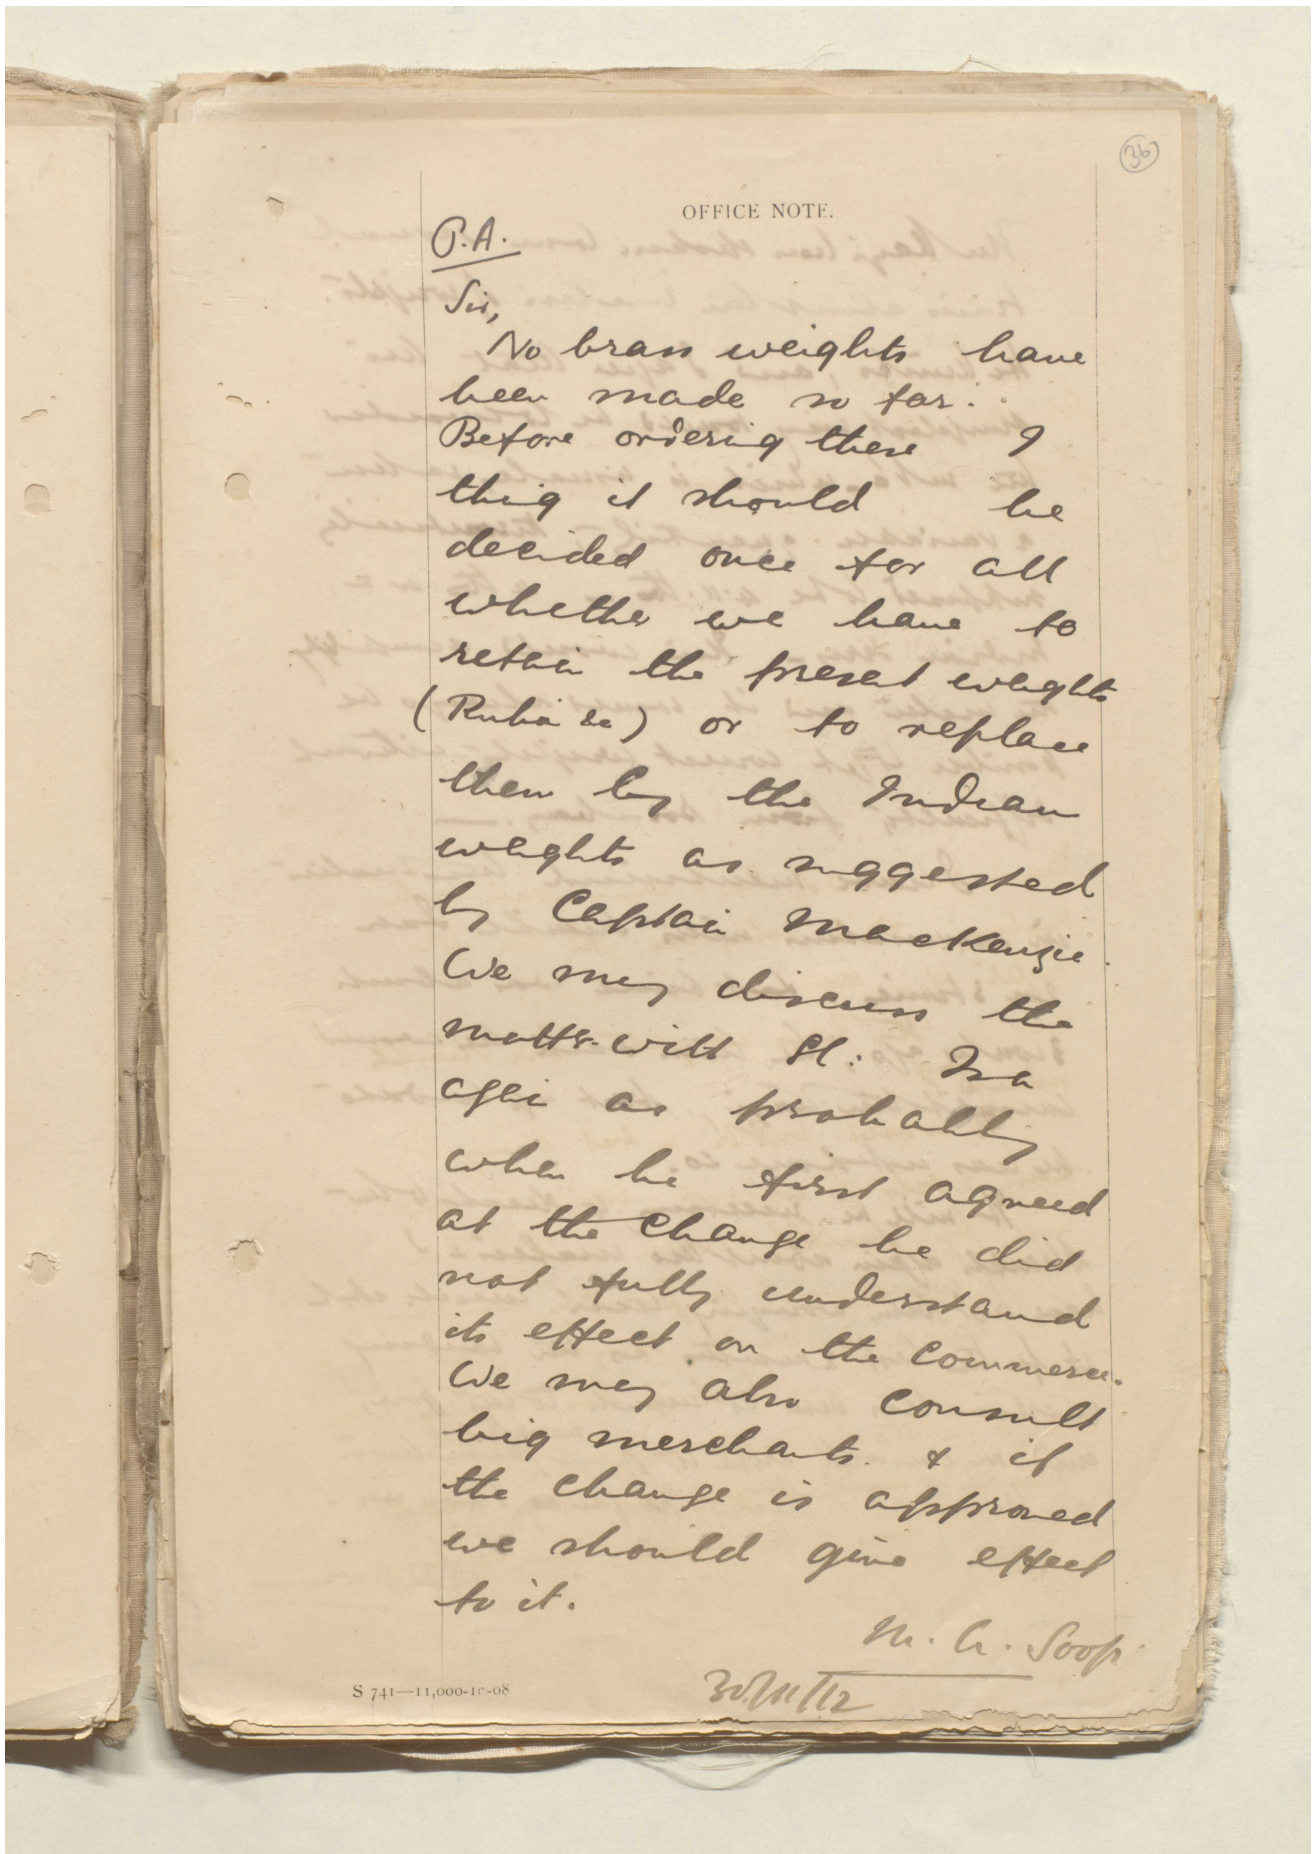 36
OFFICE NOTE.
P.A.
Sir,
No brass weights have
been made so far.
Before ordering these I
thig it should be
decided once for all
whether we have to
retain the present weights
(Ruba &c) or to replace
them by the Indian
weights as suggested
by Captain MacKenzie.
We may discuss the
matter with Sh: Isa
agai as probably
when he first agreed
at the change he did
not fully understand
its effect on the commerce.
We may also consult
big merchants & if
the change is approved
we should give effect
to it.
30/11/12
S 741—11,000-10-08